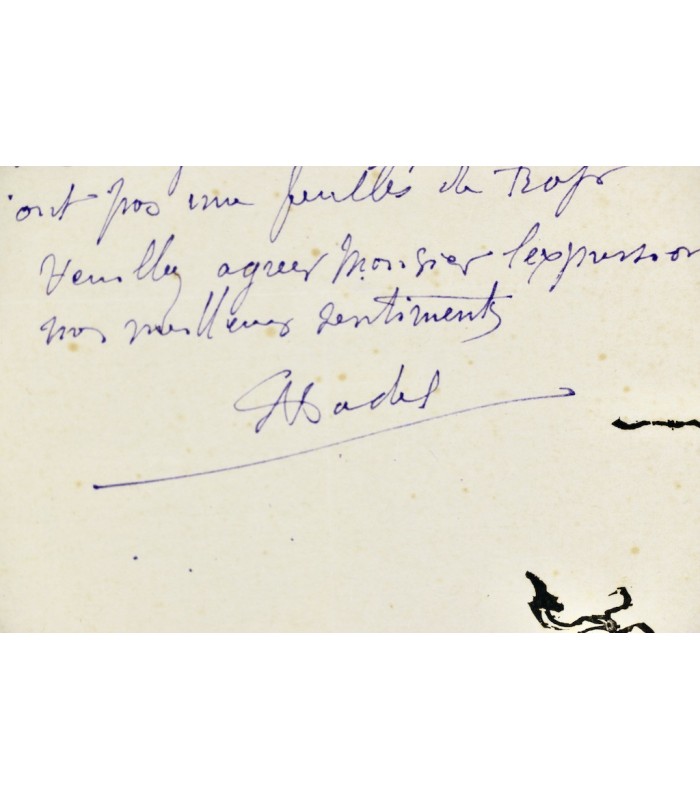 ont pas une feuilles de Trop
Veuillez agreer Monsieur l'expression
nos meilleurs sentiments